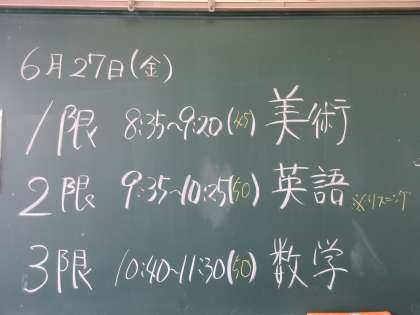 6月27日(金)
1限 8:35~9:20(45) 美術
2限 9:35~10:25(50) 英語 ※リスニング
3限 10:40~11:30(50) 数学